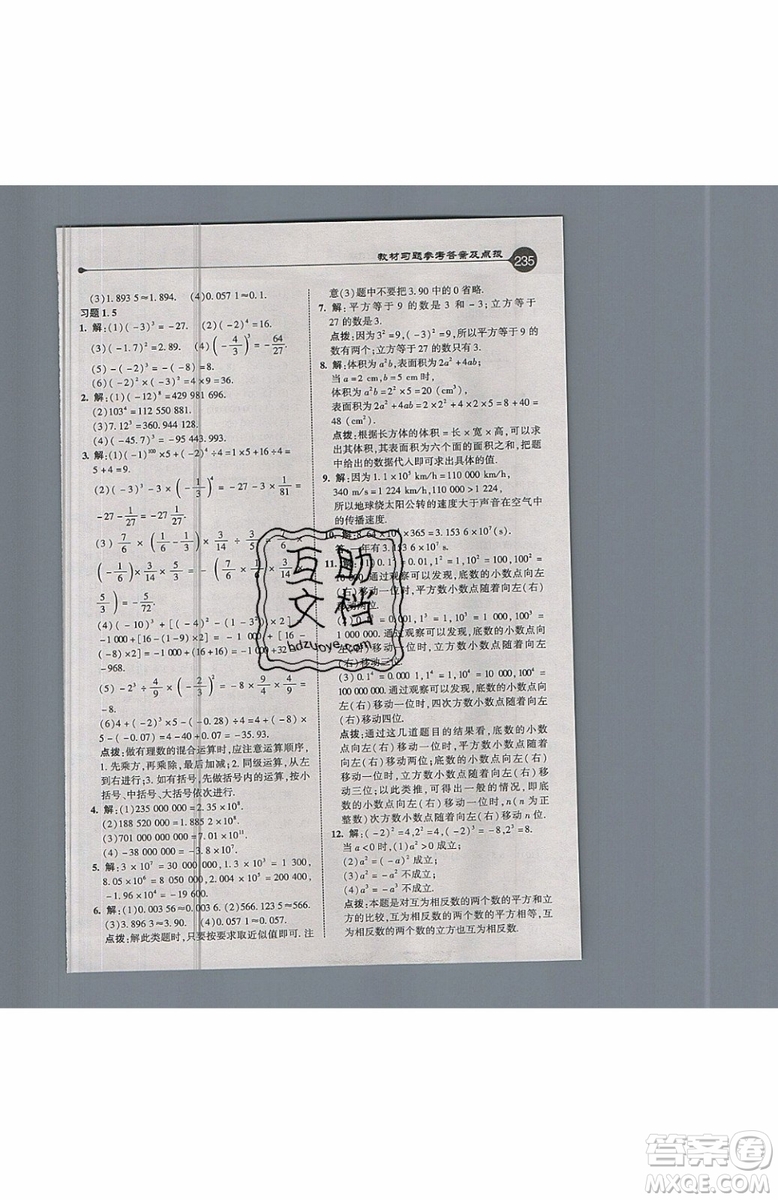 教材习题参考答案及点拨
235
(3)1.893 5≈1.894. (4)0.057 1≈0.057.
习题1.5
1. 解:(1)(-3)³=-27. (2)(-2)⁴=16.
(3)(-1.7)²=2.89. (4)(-4/3)³=-64/27
(5)-(-2)³=-(-8)=8.
(6)(-2)²×(-3)²=4×9=36.
2. 解:(1)(-12)⁸=429 981 696.
(2)103⁴=112 550 881.
(3)7.12³=360.944 128.
(4)(-45.7)³=-95 443.993.
3. 解:(1)(-1)¹⁰⁰×5+(-2)⁴÷4=1×5+16÷
5+4=9.
(2)(-3)-3×(-1/3)⁴=-3-3×1/81=
-3-1/27=-3 1/27.
(3) 7/6×(1/6-1/3)×3/14÷3/5=7/6×
(-1/6)×3/14×5/3=7/6×3/14×(-1/6×
5/3)=-5/72.
(4)(-10)³+[(-4)²-(1-3²)×2]=
-1 000+[16-(1-9)×2]=-1 000+[16-
(-8)×2]=-1 000+(16+16)=-1 000+32=
-968.
(5)-2³÷4/9×(-2/3)²=-8×9/4×4/9=
-8.
(6)4+(-2)³×5-(-0.28)÷4=4+(-8)×
5-(-0.07)=4-40+0.07=-35.93.
点拨:做有理数的混合运算时,应注意运算顺序,
1. 先乘方,再乘除,最后加减;2. 同级运算,从左
到右进行;3. 如有括号,先做括号内的运算,按小
括号、中括号、大括号依次进行.
4. 解:(1)235 000 000=2.35×10⁸.
(2)188 520 000=1.885 2×10⁸.
(3)701 000 000 000=7.01×10¹¹.
(4)-38 000 000=-3.8×10⁷.
5. 解:3×10⁷=30 000 000,1.3×10³=1 300,
8.05×10⁶=8 050 000,2.004×10⁵=200 400,
-1.96×10⁴=-19 600.
6. 解:(1)0.003 56≈0.003 6. (2)566.123 5≈566.
(3)3.896 3≈3.90. (4)0.057 1≈0.057.
点拨:解此类题时,只要按要求取近似值即可. 注
意(3)题中不要把3.90中的0省略.
7. 解:平方等于9的数是3和-3;立方等于
27的数是3.
点拨:因为3²=9,(-3)²=9,所以平方等于9的
数有两个;立方等于27的数只有3.
8. 解:体积为a²b,表面积为2a²+4ab;
当a=2 cm,b=5 cm时,
体积为a²b=2²×5=20(cm³),
表面积为2a²+4ab=2×2²+4×2×5=8+40=
48(cm²).
点拨:根据长方体的体积=长×宽×高,可以求
出其体积,其表面积为六个面的面积之和,把题
中给出的数据代入即可求出具体的值.
9. 解:因为1.1×10⁵ km/h=110 000 km/h,
340 m/s=1 224 km/h,110 000>1 224,
所以地球绕太阳公转的速度大于声音在空气中
的传播速度.
10. 解:8.64×10⁴×365=3.153 6×10⁷(s).
年有3.153 6×10⁷ s.
11. 0.1²=0.01,1²=1,10²=100,100²=
10 000.通过观察可以发现,底数的小数点向左
(右)移动一位时,平方数小数点向左(右)
移动两位.
(2)0.1³=0.001,1³=1,10³=1 000,100³=
1 000 000.通过观察可以发现,底数的小数点向
左(右)移动一位时,立方数小数点向左
(右)移动三位.
(3)0.1⁴=0.000 1,1⁴=1,10⁴=10 000,100⁴=
100 000 000.通过观察可以发现,底数的小数点向
左(右)移动一位时,四次方数小数点向左
(右)移动四位.
点拨:从这几道题目的结果看,底数的小数点
向左(右)移动一位时,平方数小数点随着
向左(右)移动两位,立方数小数点随着向
左(右)移动三位,四次方数小数点随着向左(右)
移动四位;以此类推,可得出一般的情况,即底
数的小数点向左(右)移动一位时,n(n为正整
数)次方数小数点随着向左(右)移动n位.
12. 解:(-2)²=4,2²=4,(-2)³=-8,2³=8.
当a<0时,(1)a²>0成立;
(2)a²=(-a)²成立;
(3)a²=-a²不成立;
(4)a³=-a³不成立.
点拨:本题是对互为相反数的两个数的平方和立
方的比较,互为相反数的两个数的平方相等,互为
相反的两个数的立方也互为相反数.
互助
文档
hdzuoye.com
答案圈
MXQE.COM